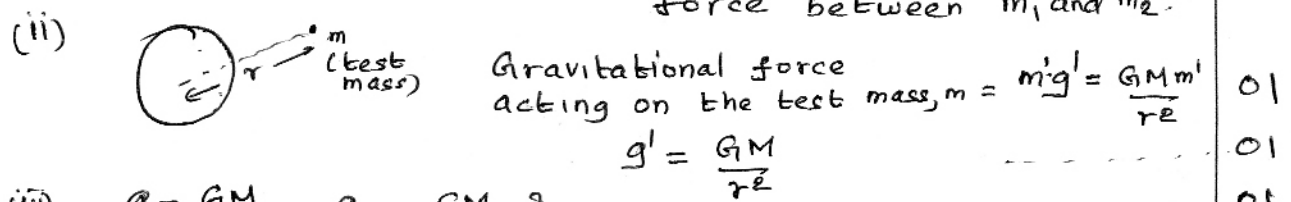 force between m₁ and m₂.
(ii) m
(test
mass)
r
Gravitational force
acting on the test mass, m = m'g' = GMm'/r² 01
g' = GM/r² ---- 01
(iii) g = GM